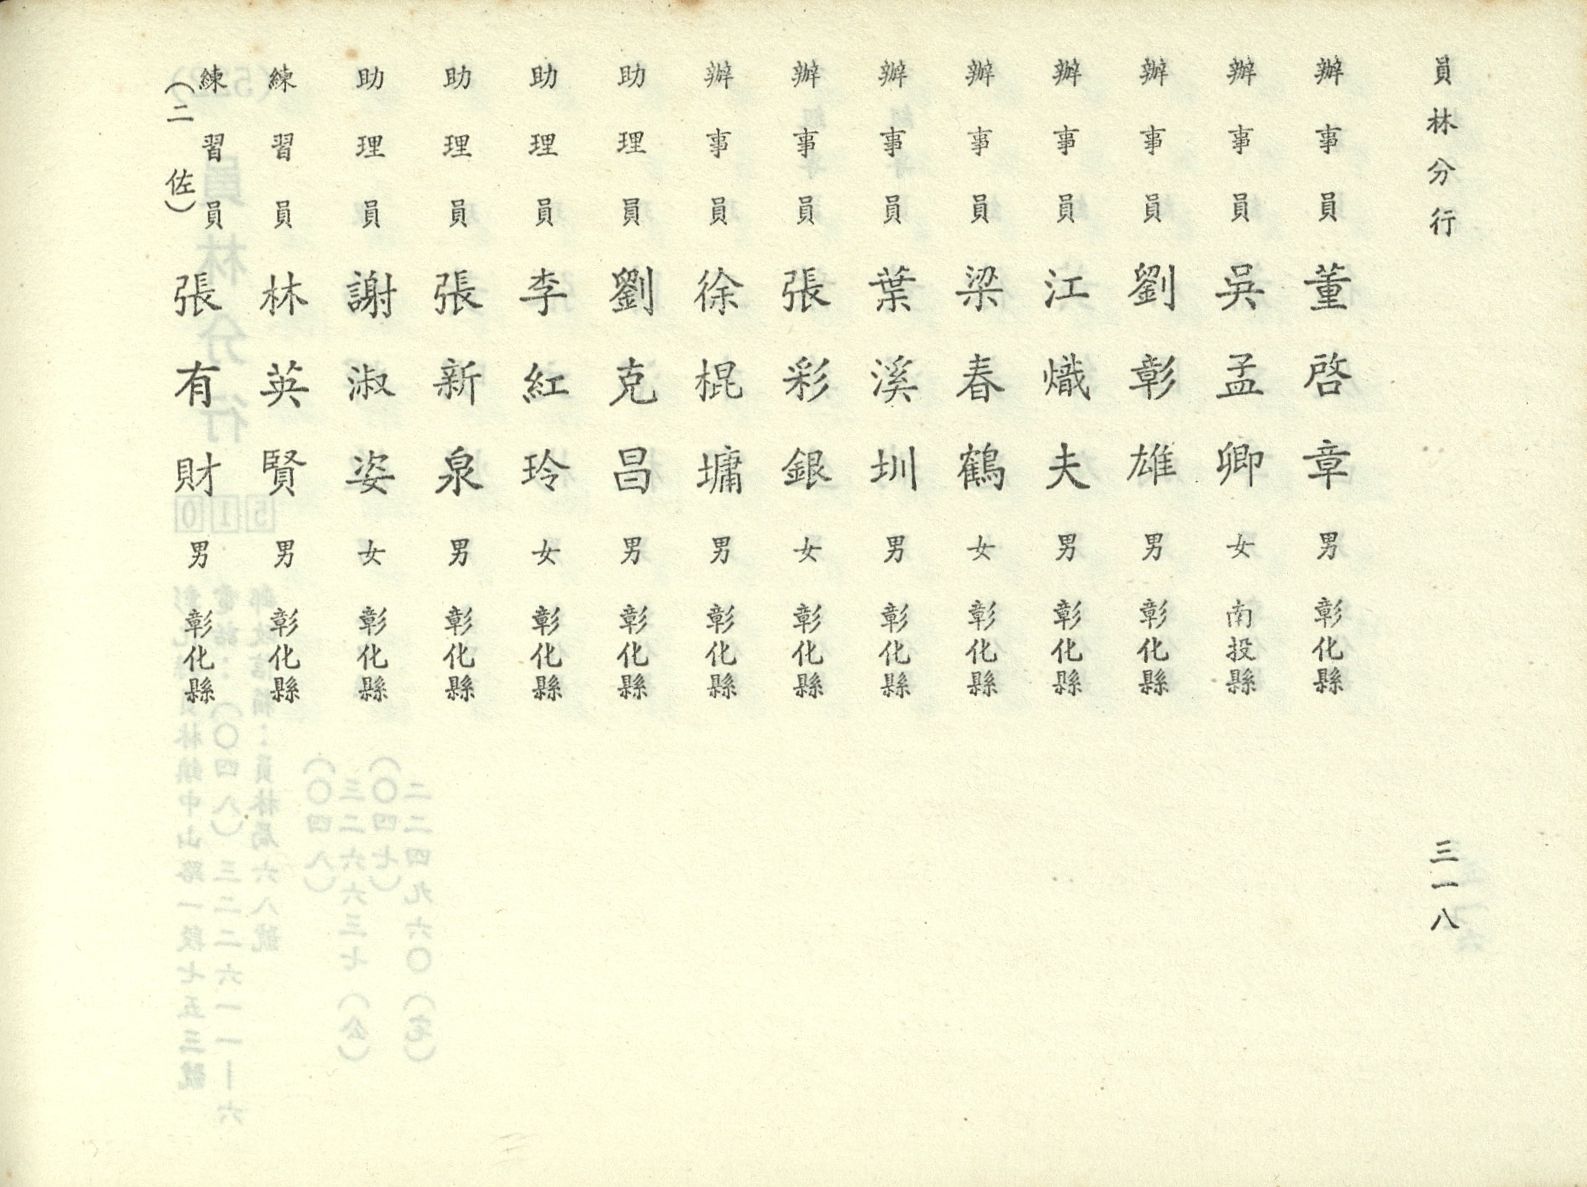 員林分行
三一八
辦事員 董啓章 男 彰化縣
辦事員 吳孟卿 女 南投縣
辦事員 劉彰雄 男 彰化縣
辦事員 江熾夫 男 彰化縣
辦事員 梁春鶴 女 彰化縣
辦事員 葉溪圳 男 彰化縣
辦事員 張彩銀 女 彰化縣
辦事員 徐棍墉 男 彰化縣
助理員 劉克昌 男 彰化縣
助理員 李紅玲 女 彰化縣
助理員 張新泉 男 彰化縣
助理員 謝淑姿 女 彰化縣
練習員 林英賢 男 彰化縣
練習員 張有財 男 彰化縣
（二佐）